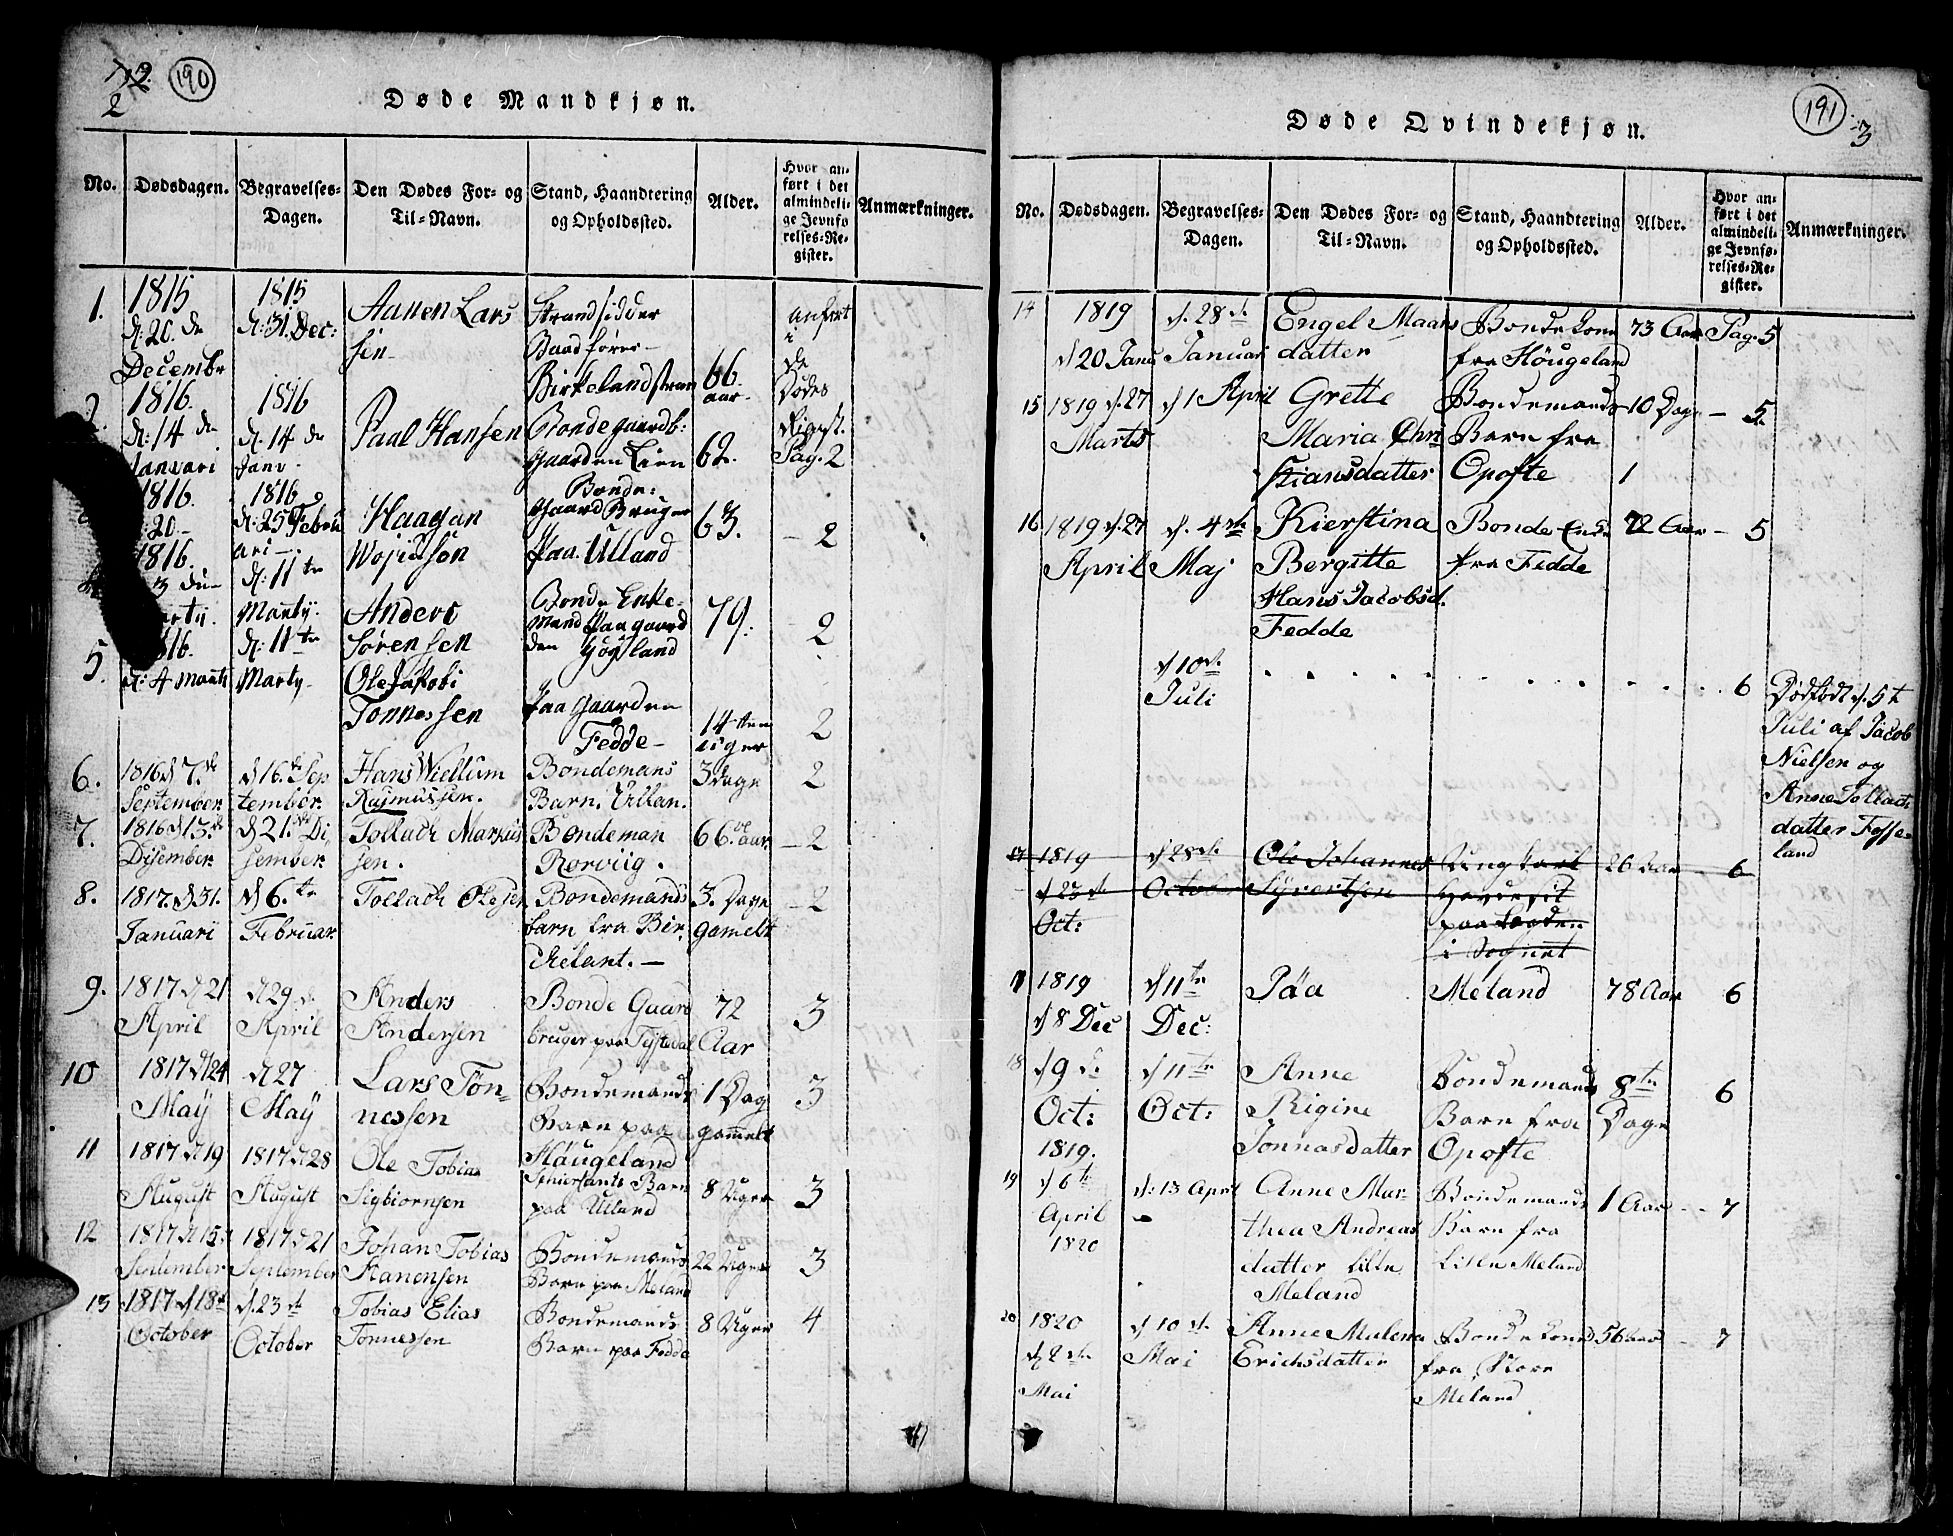 2
190
Døde Mandkjøn.
No.
Dødsdagen.
Begravelses-
Dagen.
Den Dødes For- og
Til-Navn.
Stand, Haandtering
og Opholdssted.
Alder.
Hvor an-
ført i det
almindeli-
ge Jevnfø
relses-Re-
gister.
Anmærkninger.
1.
1815
d: 20. de
Decembr
1815
d: 31. Dec:
Aanen Lars
sen
Strandsidder
Baadfører
Birkelandstran
66.
aar.
anført
i
de
Dødes
Rigist.
Pag. 2
2.
1816.
d: 14 de
Januari
1816
d. 14 de
Janv.
Paal Hansen
Bondegaardb:
Gaarden Lien
62.
1816.
20
1816
d: 25 Febru
ari
Haagan
Bonde:
Gaard Bruger
paa Ulland
63.
2
1816.
3 de
d: 11 te
Marty.
Anders
Sørensen
Bonde Enke-
mand paa gaard
den
79.
2
5.
1816.
d: 4 Marti
d: 11 te
Marty
Ole Jakobi
Tonnessen
paa Gaarden
Fedde
14 ten
uger
2
6.
1816 d 7. de
September
d 16. de Sep
tember
Hans Wiellum
Rasmussen.
Bondemans
Barn. Ullan.
3 Dage
2
7.
1816 d 13. de
Disember
d 21. de Di
sember
Tollach Markus
sen.
Bondeman
Rorviig.
66 aar
2
8.
1817. d 31.
Januari
d 6. te
Februar
Tollach Olesen
Bondemands
barn fra Bir
kelant.
3. Dage
gamelt
2
9.
1817 d 21
April
d 29 d
April
Anders
Andersen
Bonde Gaard
bruger paa
72
Aar
3
10
1817 d 24
May
d 27
May
Lars Ton-
nessen
Bondemands
Barn paa
Haugeland
1 Dag
gammelt
3
11
1817 d 19
August
1817 d 28
August
Ole Tobias
Sigbiornsen
Barn
paa Uiland
8 Uger
3
12
1817 d 15
September
1817 d 21
September
Johan Tobias
Aanensen
Bondemands
Barn paa Meland
22 Uger
3
13
1817 d 18 d
October
d. 23 de
October
Tobias Elias
Tonnessen
Bondemands
Barn paa Fedde
8 Uger
4
191
3
Døde Qvindekjøn.
No.
Dødsdagen.
Begravelses-
Dagen.
Den Dødes For- og
Til-Navn.
Stand, Haandtering
og Opholdssted.
Alder.
Hvor an-
ført i det
almindeli-
ge Jevnfø-
relses-Re-
gister.
Anmærkninger.
14
1819
d 20 Janu
d. 28 de
Januari
Engel Maans
datter
Bondekone
fra Höugeland
73 Aar
Pag. 5
15
1819 d. 27
Marts
d 1 April
Grette
Maria Chri
stiansdatter
Bondemands
Barn fra
Opofte
10 Dage
1
5.
16
1819 d. 27
April
d. 4 de
Maj
Kierstina
Bergitte
Hans Jacobsd.
Fedde
Bonde Enke
fra Fedde
72 Aar
5
d 10 de
Juli
6
Dødfødt d. 5 t
Juli af Jacob
Nielsen og
Anne Tollach
datter Fosse-
land
17
1819
d 23 d
Oct:
d 28 de
October
Ole Johannes
Syvertsen
Ungkarl
paa
i Sognet
26 Aar
6
1819
d 8 Dec
d 11 te
Dec:
Meland
78 Aar
6
18
d 9 de
Oct:
1819.
d 11 te
Oct:
Anne
Rigine
Jonnasdatter
Bondemands
Barn fra
Opofte
8 te
Dage
6
19
d 6 te
April
1820
d: 13 April
Anne Mar-
thea Andreas
datter Lille
Meland
Bondemands
Barn fra
Lille Meland
1 Aar
7
20
1820
d 2 de
Mai
d 10 de
Mai
Anne Malena
Erichsdatter
Bondekone
fra Store
Meland
56 Aar
7